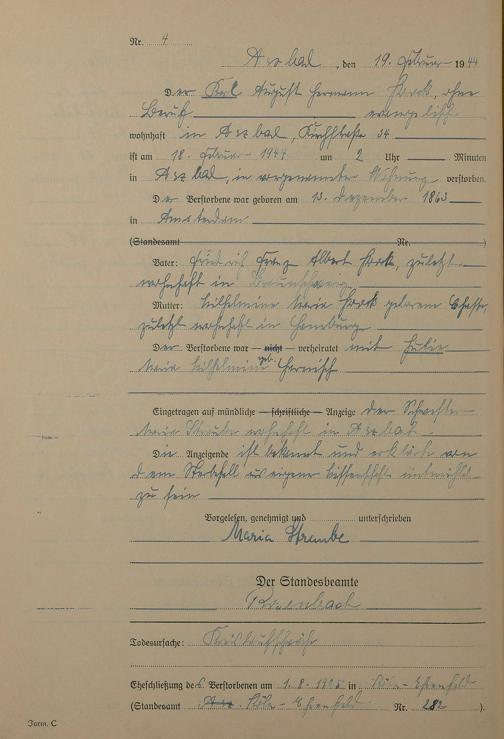 Nr. 4
Asbal, den 19. Februar 1944
Der Karl August Hermann Hork, ohne
Beruf evangelisch
wohnhaft in Asbal, Kirchstraße 34
ist am 18. Februar 1944 um 2 Uhr Minuten
in Asbal, in vorgenannter Wohnung verstorben.
Der Verstorbene war geboren am 13. Dezember 1863
in Amsterdam
(Standesamt Nr. )
Vater: Friedrich Franz Albert Hork, zuletzt
wohnhaft in Braunschweig
Mutter: Wilhelmine Maria Hork geborene
zuletzt wohnhaft in Hamburg
Der Verstorbene war — nicht — verheiratet mit Julie
Maria Wilhelmine geb. Hernisch
Eingetragen auf mündliche — schriftliche — Anzeige der Schwester
Maria Straube wohnhaft in Asbal.
Die Anzeigende ist bekannt und erklärte von
dem Sterbefall aus eigener Wissenschaft unterrichtet
zu sein
Vorgelesen, genehmigt und unterschrieben
Maria Straube
Der Standesbeamte
Todesursache: Kreislaufschwäche
Eheschließung des Verstorbenen am 1. 8. 1905 in Köln-Ehrenfeld
(Standesamt Köln-Ehrenfeld Nr. 282 ).
Form. C